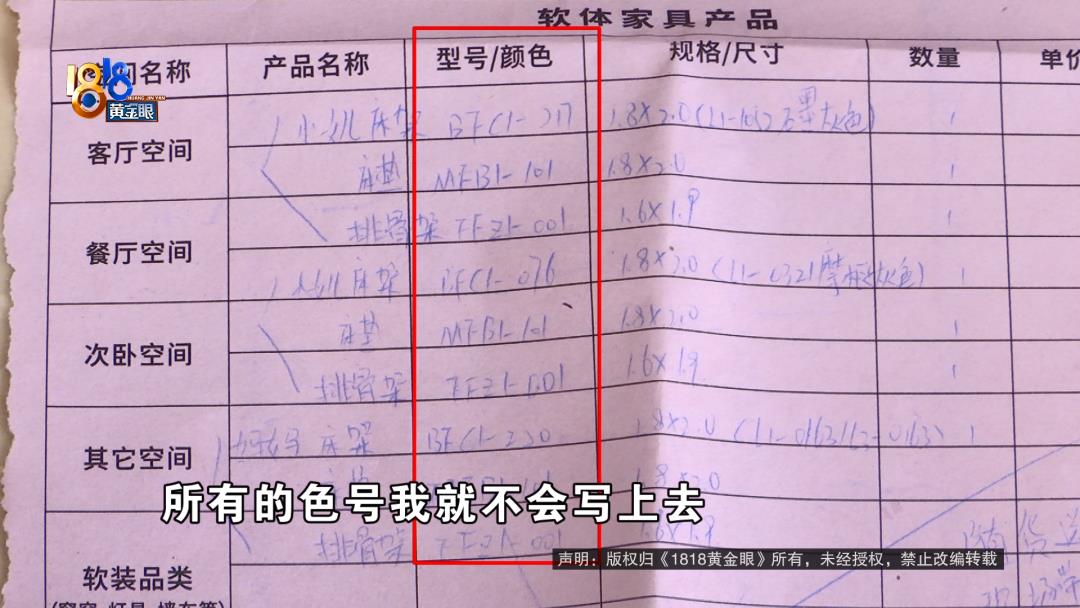 软体家具产品
间名称 产品名称 型号/颜色 规格/尺寸 数量 单价
1818
HUANG JIN YAN
黄金眼
客厅空间 床架 BFC1-217 1.8×2.0 1
床垫 MFB1-101 1.8×2.0 1
排骨架 FFZ1-001 1.6×1.9 1
餐厅空间 床架 BFC1-076 1.8×2.0 (11-0321摩卡灰色) 1
次卧空间 床垫 MFB1-101 1.8×2.0 1
排骨架 FFZ1-001 1.6×1.9 1
其它空间 床架 BFC1-230 1.8×2.0 1
1.8×2.0
所有的色号我就不会写上去
排骨架 FFZ1-001
声明：版权归《1818黄金眼》所有，未经授权，禁止改编转载
软装品类